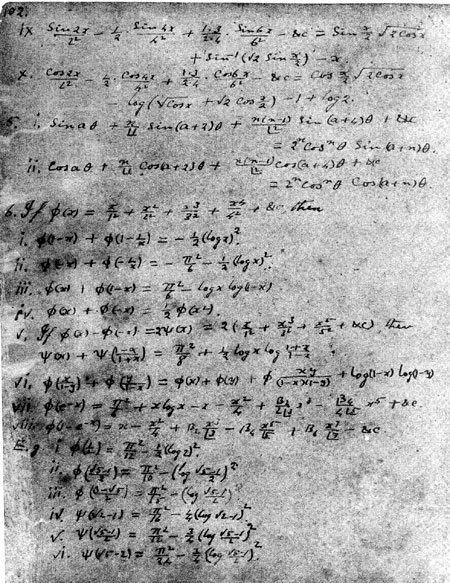 102.
ix. Sin2x/2² - 1/2 · Sin4x/4² + 1·3/2·4 · Sin6x/6² - &c = Sin x/2 √2Cosx
+ Sin⁻¹(√2 Sin x/2) - x.
x. Cos2x/2² - · Cos4x/4² + 1·3/2·4 · Cos6x/6² - &c = Cos x/2 √2Cosx
- log(√Cosx + √2 Cos x/2) - 1 + log2.
5. i. Sin aθ + n/⌊1 Sin(a+2)θ + n(n-1)/⌊2 Sin(a+4)θ + &c
= 2ⁿ Cosⁿθ Sin(a+n)θ.
ii. Cos aθ + n/⌊1 Cos(a+2)θ + n(n-1)/⌊2 Cos(a+4)θ + &c
= 2ⁿ Cosⁿθ Cos(a+n)θ.
6. If φ(x) = x/1² + x²/2² + x³/3² + x⁴/4² + &c, then
i. φ(1-x) + φ(1-1/x) = -1/2 (log x)².
ii. φ(-x) + φ(-1/x) = -π²/6 - 1/2 (log x)².
iii. φ(x) + φ(1-x) = π²/6 - log x log(1-x).
iv. φ(x) + φ(-x) = 1/2 φ(x²).
v. If φ(x) - φ(-x) = 2ψ(x) = 2(x/1² + x³/3² + x⁵/5² + &c) then
ψ(x) + ψ(1-x/1+x) = π²/8 + 1/2 log x log 1+x/1-x.
vi. φ(x/1-y) + φ(y/1-x) = φ(x) + φ(y) + φ xy/(1-x)(1-y) + log(1-x) log(1-y)
vii. φ(e⁻ˣ) = π²/6 + x log x - x - x²/4 + B₂/2⌊3 x³ - B₄/4⌊5 x⁵ + &c
viii. φ(1-e⁻ˣ) = x - x²/4 + B₂ x³/⌊3 - B₄ x⁵/⌊5 + B₆ x⁷/⌊7 - &c
E.g. i. φ(1/2) = π²/12 - 1/2 (log 2)².
ii. φ(√5-1/2) = π²/10 - (log √5-1/2)²
iii. φ(3-√5/2) = π²/15 - (log √5-1/2)²
iv. ψ(√2-1) = π²/16 - 1/4 (log √2-1)²
v. ψ(√5-1/2) = π²/12 - 3/4 (log √5-1/2)²
vi. ψ(√5-2) = π²/24 - 3/4 (log √5-1/2)².